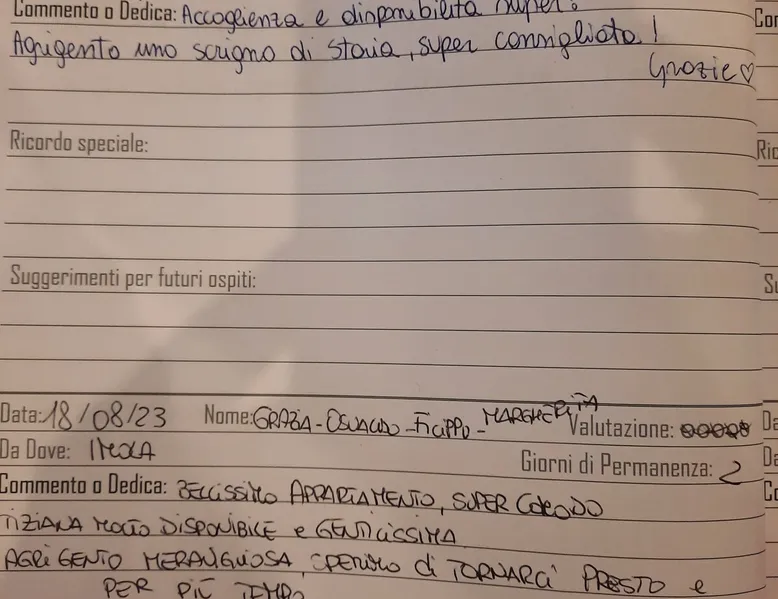 Commento o Dedica: Accoglienza e disponibilità super!
Agrigento uno scrigno di storia, super consigliata!
Grazie ♡
Ricordo speciale:
Suggerimenti per futuri ospiti:
Data: 18/08/23 Nome: GRAZIA - OSVALDO - FILIPPO - MARGHERITA Valutazione:
Da Dove: IMOLA Giorni di Permanenza: 2
Commento o Dedica: BELLISSIMO APPARTAMENTO, SUPER COMODO
TIZIANA MOLTO DISPONIBILE e GENTILISSIMA
AGRIGENTO MERAVIGLIOSA, SPERIAMO di TORNARCI PRESTO e
PER PIÙ TEMPO